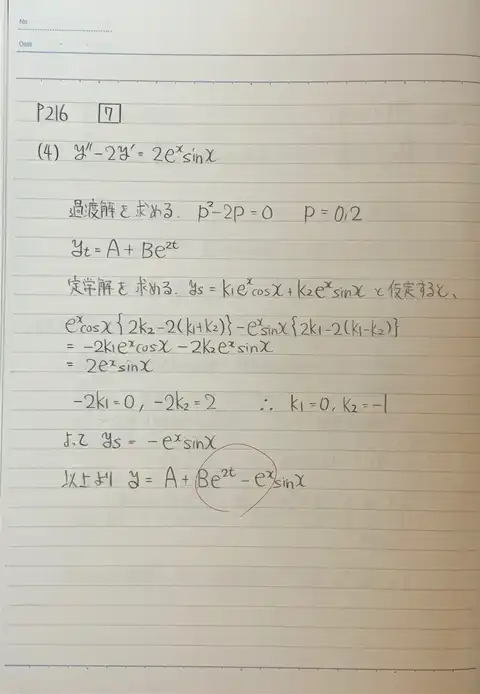 No
Date
P216 [7]
(4) y''-2y' = 2eˣsinx
過渡解を求める. p²-2p=0 p=0,2
yt = A + Be²ᵗ
定学解を求める. ys = k₁eˣcosx + k₂eˣsinx と仮定すると、
eˣcosx{2k₂-2(k₁+k₂)} - eˣsinx{2k₁-2(k₁-k₂)}
= -2k₁eˣcosx - 2k₂eˣsinx
= 2eˣsinx
-2k₁=0, -2k₂=2 ∴ k₁=0, k₂=-1
よって ys = -eˣsinx
以上より y = A + Be²ᵗ - eˣsinx